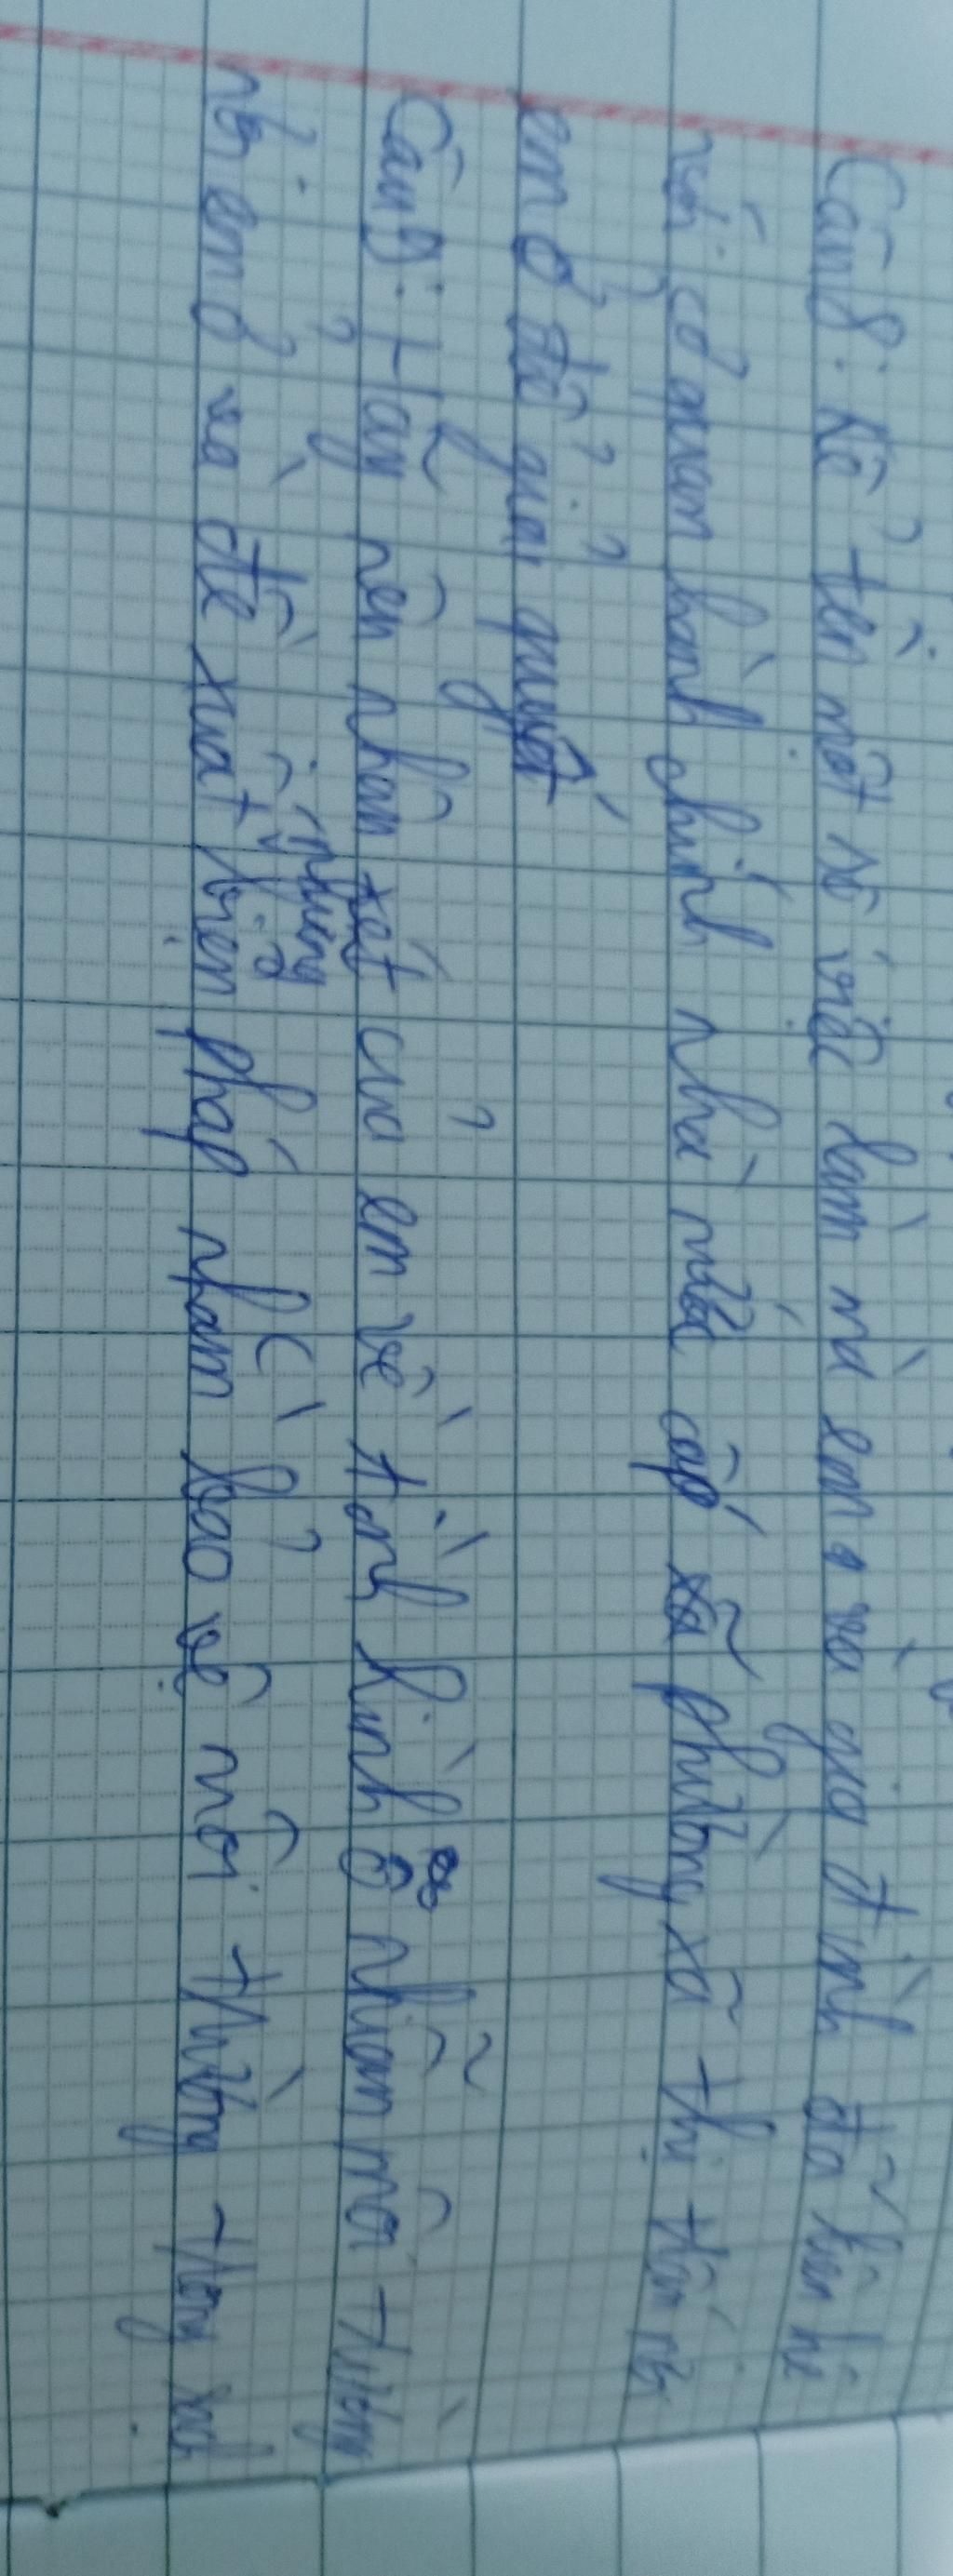 Câu 8: Kể tên một số việc làm mà em và gia đình đã liên hệ
với cơ quan hành chính nhà nước cấp xã phường xã thị trấn nơi
em ở để giải quyết
Câu 9: Hãy nên nhân xét của em về tình hình ô nhiễm môi trường
nơi em ở và đề xuất những biện pháp nhằm bảo vệ môi trường trong sạch